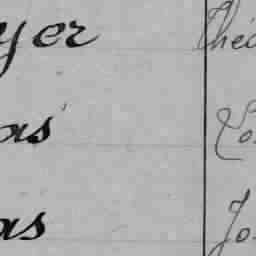 yer Théo
as Lo
as Jo